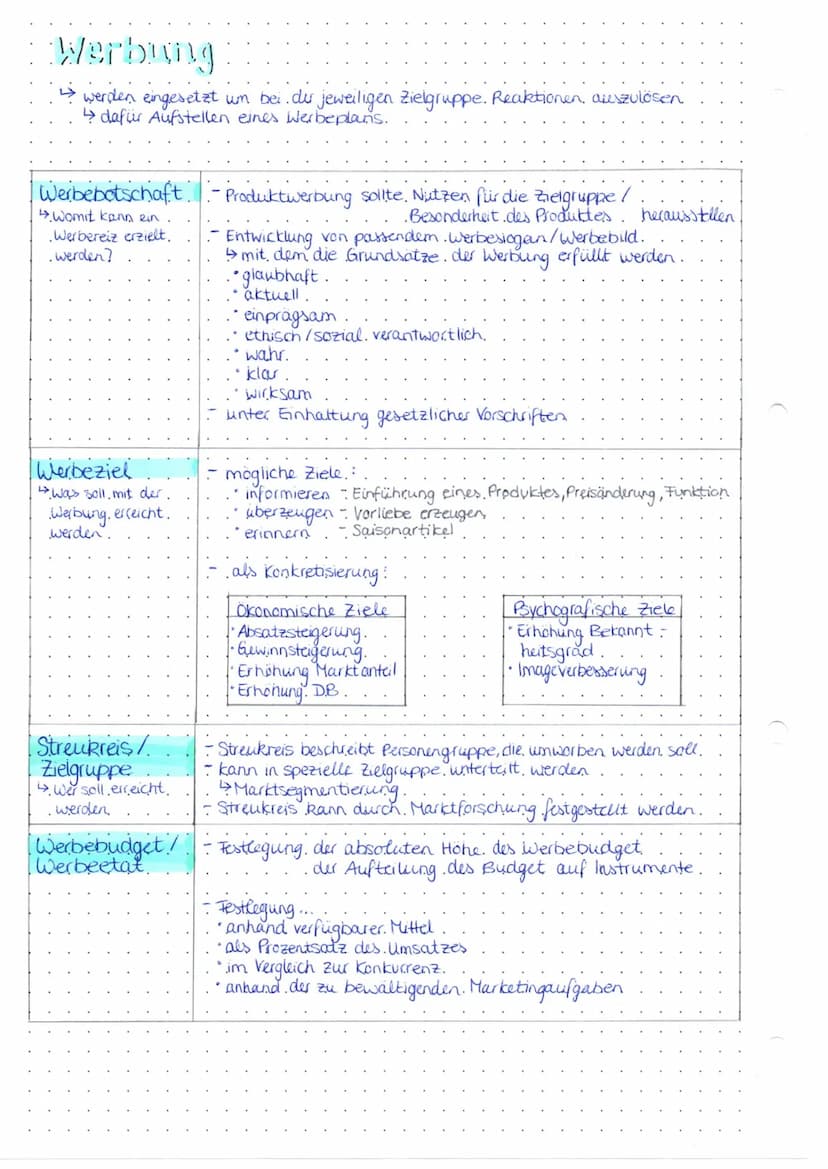 Werbung
↳ werden eingesetzt um bei der jeweiligen Zielgruppe Reaktionen auszulösen
↳ dafür Aufstellen eines Werbeplans.
Werbebotschaft
↳ Womit kann ein
Werbereiz erzielt
werden?
- Produktwerbung sollte Nutzen für die Zielgruppe /
Besonderheit des Produktes herausstellen
- Entwicklung von passendem Werbeslogan/Werbebild
↳ mit dem die Grundsätze der Werbung erfüllt werden
• glaubhaft
• aktuell
• einprägsam
• ethisch / sozial verantwortlich
• wahr
• klar
• wirksam
- unter Einhaltung gesetzlicher Vorschriften
Werbeziel
↳ Was soll mit der
Werbung erreicht
werden
- mögliche Ziele:
• informieren - Einführung eines Produktes, Preisänderung, Funktion
• überzeugen - Vorliebe erzeugen
• erinnern - Saisonartikel
- als Konkretisierung:
Ökonomische Ziele
• Absatzsteigerung
• Gewinnsteigerung
• Erhöhung Marktanteil
• Erhöhung DB
Psychografische Ziele
• Erhöhung Bekannt-
heitsgrad
• Imageverbesserung
Streukreis /
Zielgruppe
↳ Wer soll erreicht
werden
- Streukreis beschreibt Personengruppe, die umworben werden soll
- kann in spezielle Zielgruppe unterteilt werden
↳ Marktsegmentierung
- Streukreis kann durch Marktforschung festgestellt werden
Werbebudget /
Werbeetat
- Festlegung der absoluten Höhe des Werbebudget
der Aufteilung des Budget auf Instrumente
- Festlegung...
• anhand verfügbarer Mittel
• als Prozentsatz des Umsatzes
• im Vergleich zur Konkurrenz
• anhand der zu bewältigenden Marketingaufgaben